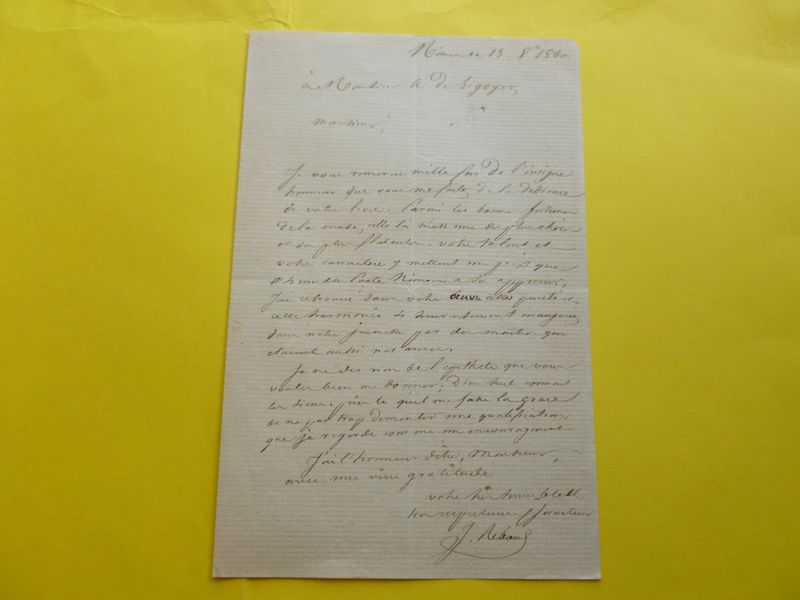 Nimes 13, 8bre 1860
à Monsieur de Sigoyer,
Monsieur,
Je vous remercie mille fois de l'insigne
honneur que vous me faites de la dédicace
de votre livre. Parmi les bonnes fortunes
de la muse, celle là m'est une des plus chères
et des plus flatteuses. votre talent et
votre caractère y mettent un prix que
l'humble Poete Nimois a su apprécier.
J'ai retrouvé dans votre œuvre cette pureté
cette harmonie si
dans notre jeunesse par des maitres qui
étaient aussi nos amis.
Je ne dis rien de l'epithete que vous
voulez bien me donner. Dieu seul connait
les siens. priez le qu'il me fasse la grace
de ne pas trop dementir une qualification
que je regarde comme un encouragement
J'ai l'honneur d'être, Monsieur,
avec une vive gratitude
votre très humble et
très serviteur
J. Reboul